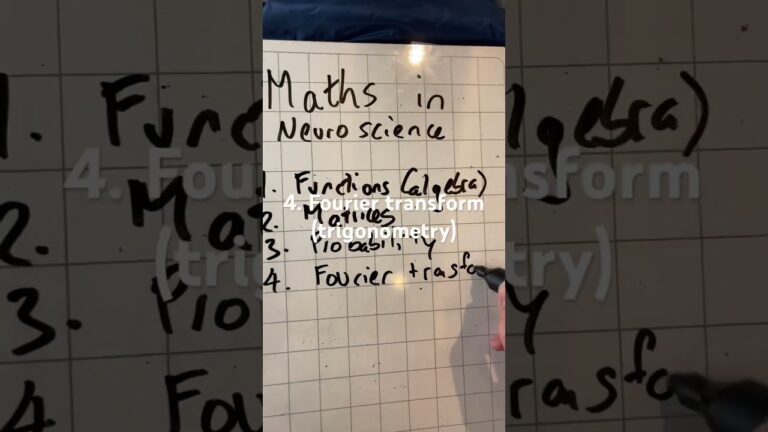 Maths in
Neuroscience
1. Functions (algebra)
2. Matrices
3. Probability
4. Fourier trasfo
4. Fourier transform
(trigonometry)